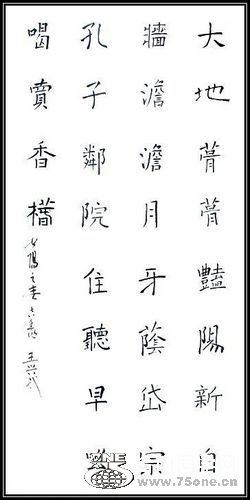 大地菁菁豔陽新白
牆澹澹月牙蔭岱宗
孔子鄰院住聽早吆
喝賣香
www.75one.cn